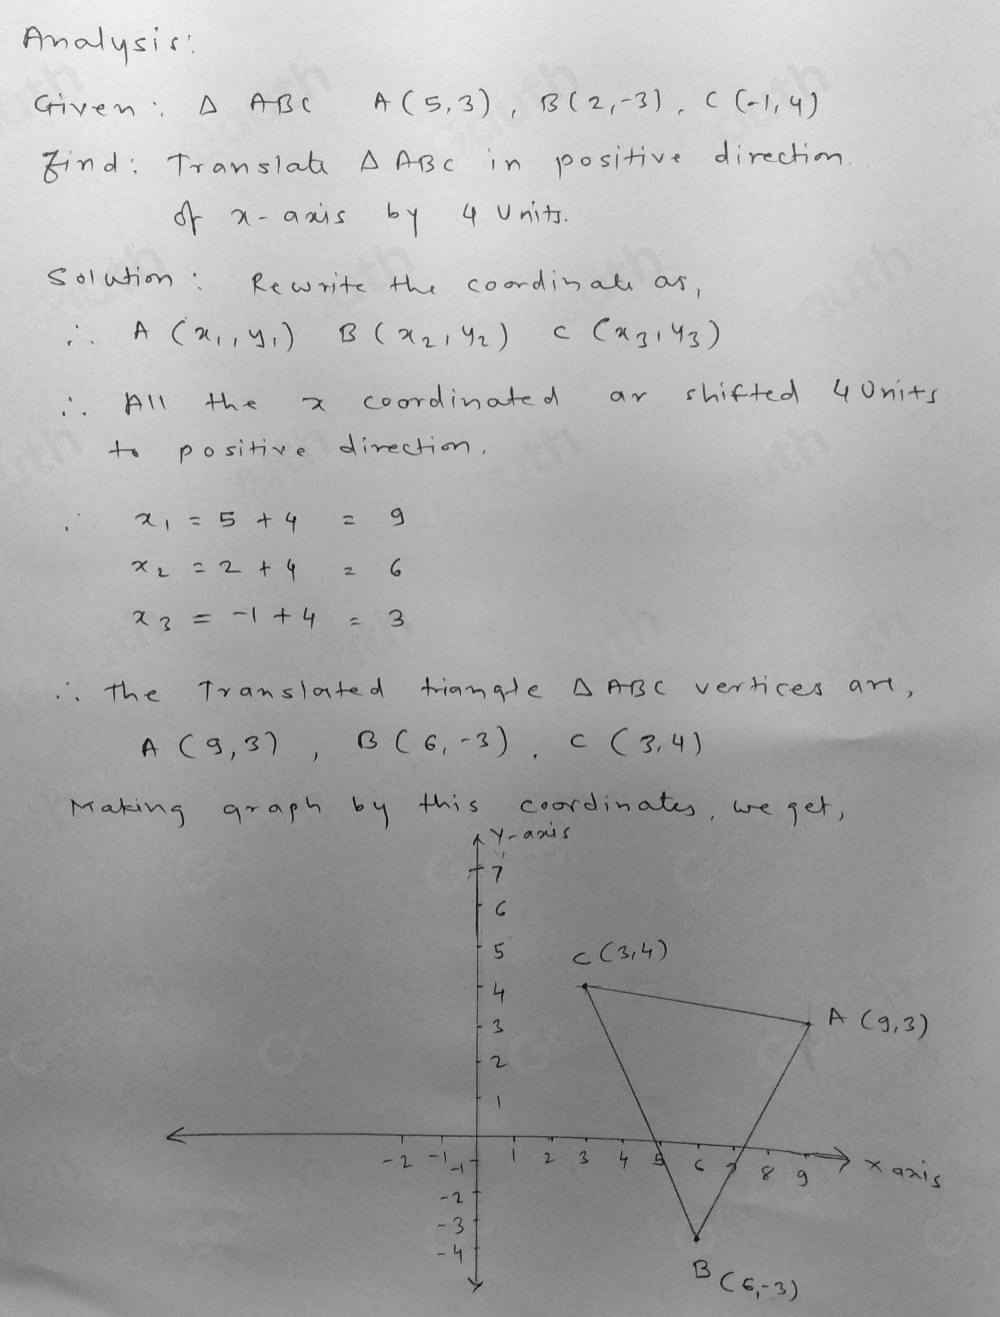 Analysis:
Given: Δ ABC A(5,3), B(2,-3), C(-1,4)
Find: Translate Δ ABC in positive direction.
of x-axis by 4 Units.
Solution: Rewrite the coordinate as,
∴ A (x₁,y₁) B (x₂,y₂) C (x₃,y₃)
∴ All the x coordinated ar shifted 4 Units
to positive direction.
∴ x₁ = 5 + 4 = 9
x₂ = 2 + 4 = 6
x₃ = -1 + 4 = 3
∴ The Translated triangle Δ ABC vertices are,
A (9,3), B (6,-3). C (3,4)
Making graph by this coordinates, we get,
Y-axis
7
6
5
C (3,4)
4
3
A (9,3)
2
1
-2 -1 1 2 3 4 5 6 7 8 9 X axis
-1
-2
-3
-4
B (6,-3)